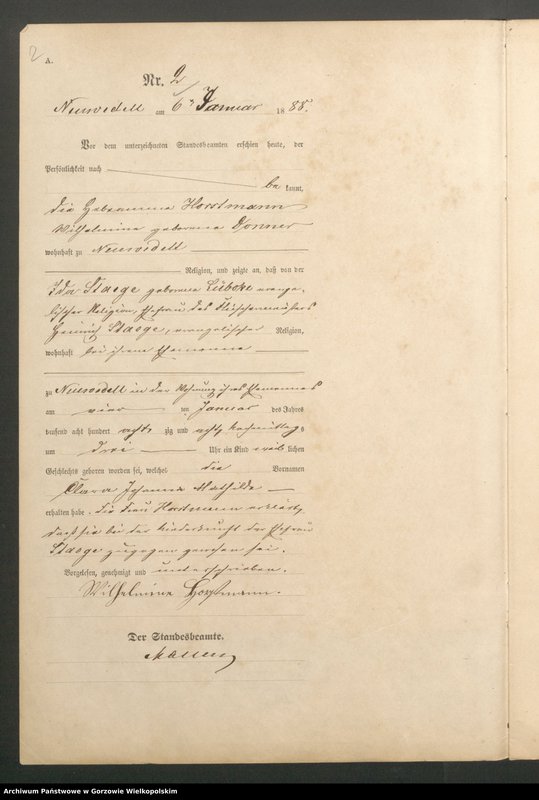 2
A.
Nr. 2
Neuwedell am 6ten Januar 1888.
Vor dem unterzeichneten Standesbeamten erschien heute, der
Persönlichkeit nach
be kannt,
die Hebamme Horstmann
Wilhelmine geborene Donner
wohnhaft zu Neuwedell
Religion, und zeigte an, daß von der
Ida Staege geborene Lübcke evange-
lischer Religion, Ehefrau des Fleischermeisters
Heinrich Staege, evangelischer Religion,
wohnhaft bei ihrem Ehemanne
zu Neuwedell in der Wohnung ihres Ehemannes
am vier ten Januar des Jahres
tausend acht hundert acht zig und acht, Nachmittags
um drei Uhr ein Kind weib lichen
Geschlechts geboren worden sei, welches die Vornamen
Clara Johanna Mathilde
erhalten habe. Die Frau Horstmann erklärt,
daß sie bei der Niederkunft der Ehefrau
Staege zugegen gewesen sei.
Vorgelesen, genehmigt und unterschrieben.
Wilhelmine Horstmann.
Der Standesbeamte.
Archiwum Państwowe w Gorzowie Wielkopolskim